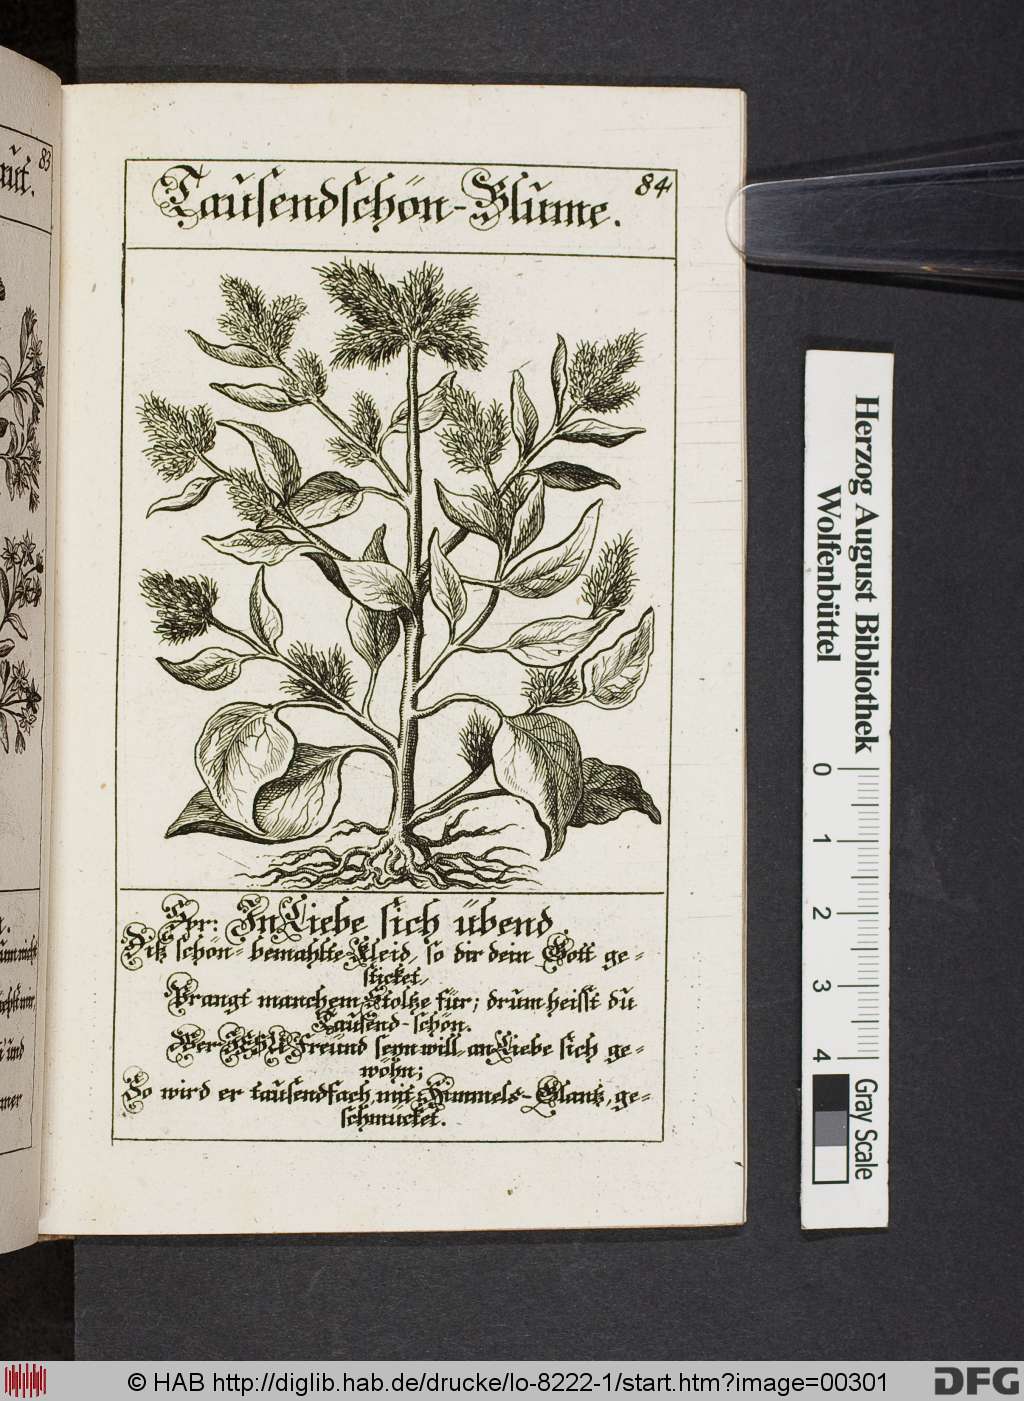 84
Tausendschön-Blume.
Spr: In Liebe sich übend.
Diß schön-bemahlte Kleid, so dir dein Gott ge-
sticket,
Prangt manchem Stoltze für; drum heisst du
Tausend-schön.
Wer JESU Freund seyn will, an Liebe sich ge-
wöhn;
So wird er tausendfach, mit Himmels-Glantz, ge-
schmücket.
83
aut.
Herzog August Bibliothek
Wolfenbüttel
0
1
2
3
4
Gray Scale
© HAB http://diglib.hab.de/drucke/lo-8222-1/start.htm?image=00301
DFG